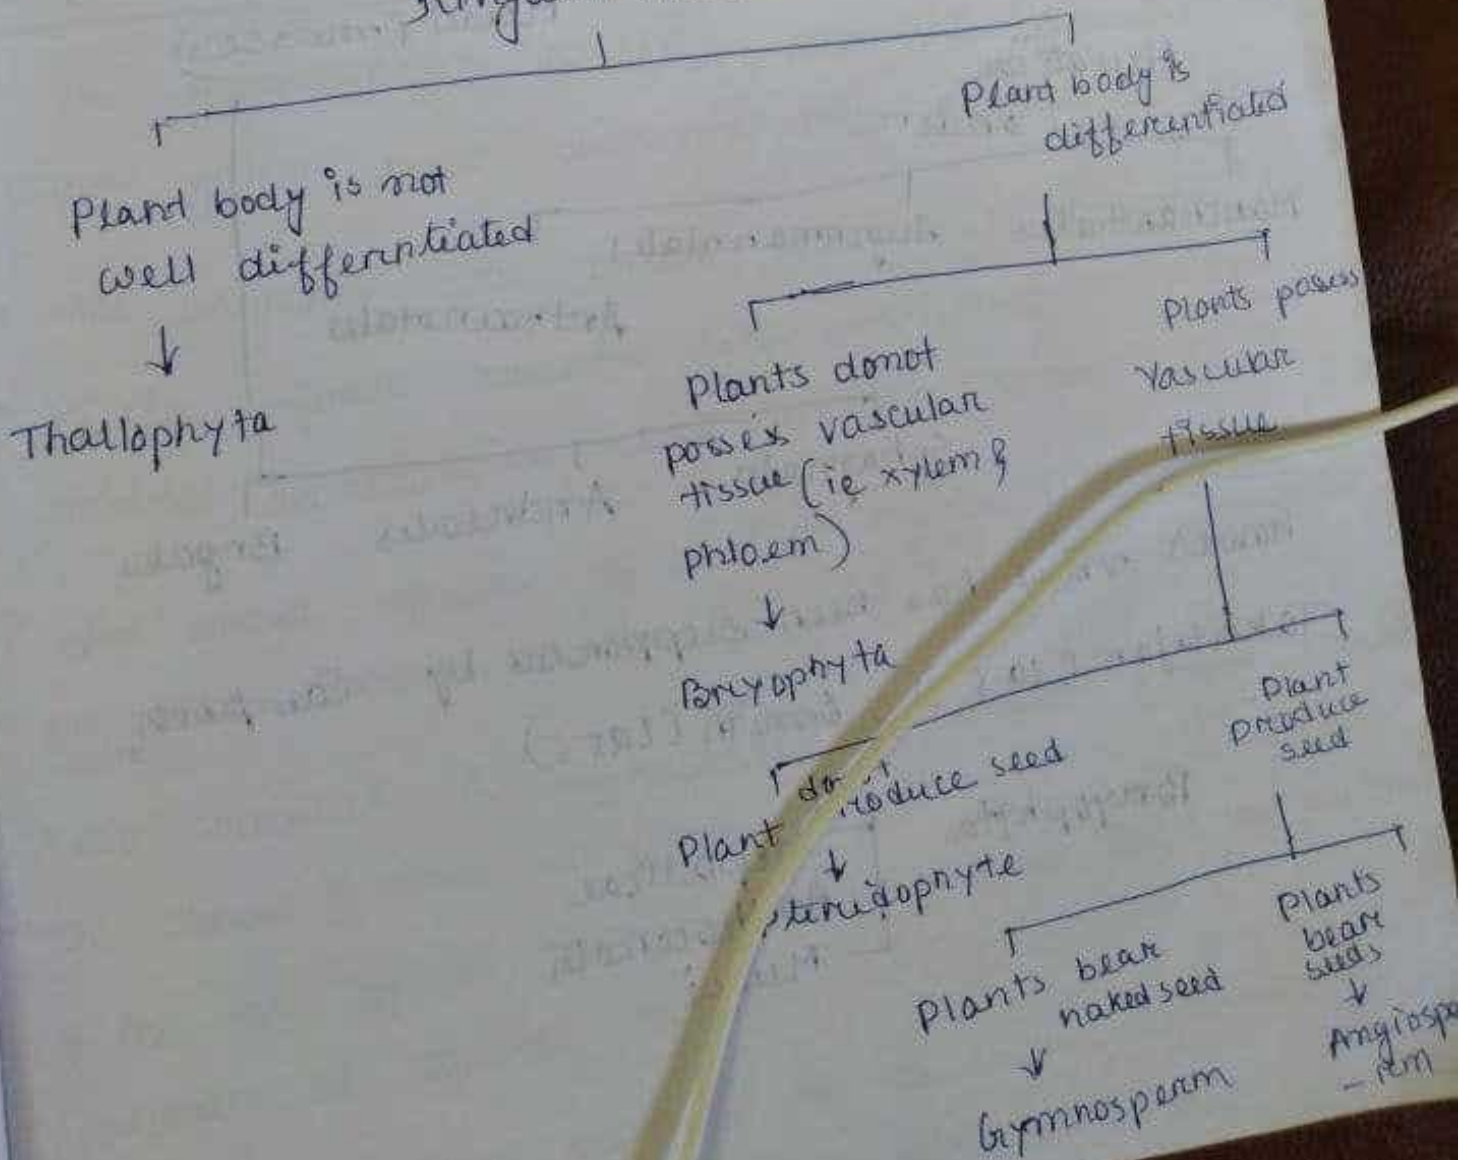 Plant body is
differentiated
Plant body is not
well differentiated
Thallophyta
Plants donot
possess vascular
tissue (ie xylem &
phloem)
Bryophyta
Plants possess
vascular
tissue
Plant produce seed
Pteridophyte
Plant
produce
seed
Plants bear
naked seed
Gymnosperm
Plants
bear
seeds
Angiospe
- rm